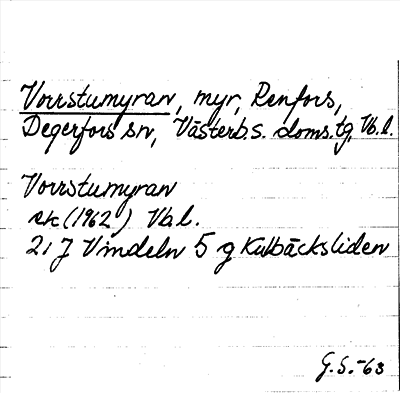 Vorrstumyran, myr, Renfors,
Degerfors sn, Västerb.s. doms.tg, Vb.l.
Vorrstumyran
ek (1962) Vb l.
21 J Vindeln 5 g Kulbäcksliden
G.S.-63